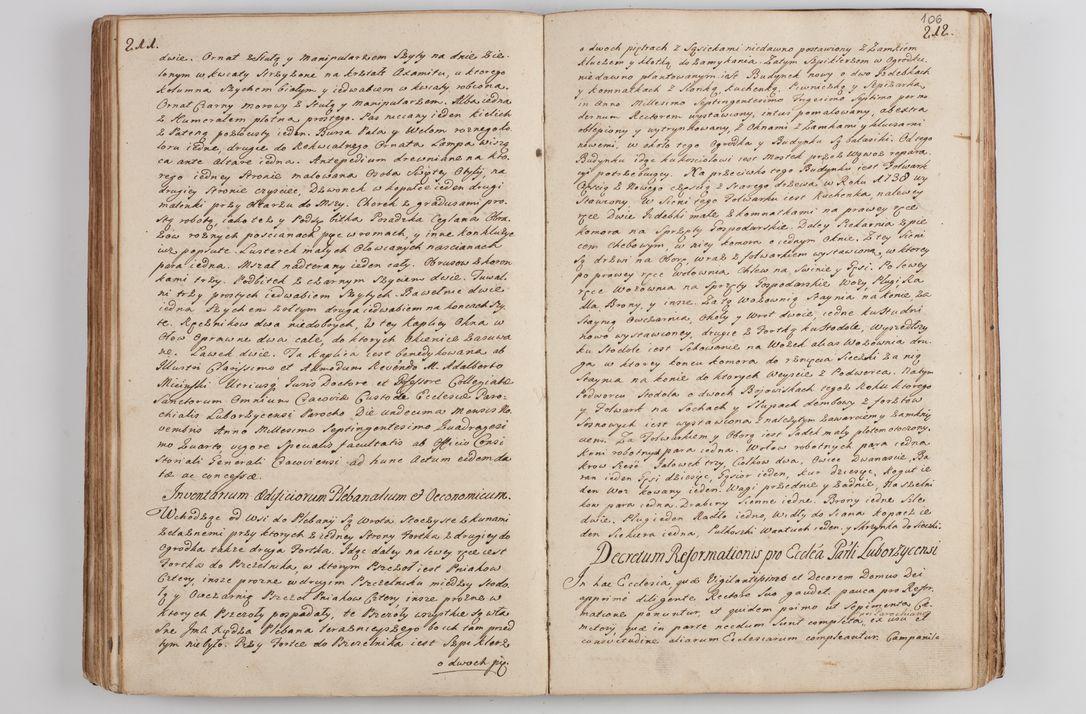 211.
dwie. Ornat z Stułą y Manipularzem Szyty na dnie Zie-
lonym w kwiaty Strzyżone na kształt Axamitu, u ktorego
kolumna Szychem białym y iedwabiem w kwiaty robiona.
Ornat Czarny morowy z Stułą y Manipularzem. Alba iedna
z Humerałem płotna prostego. Pas niciany ieden Kielich
z Pateną pozłocisty ieden. Bursa Palla y Welom roznego ko-
loru iedne, drugie do Rekwialnego Ornata Lampa wiszą-
ca ante altare iedna. Antepedium drewniane na kto-
rego iedney Stronie malowana Osoba Swiętey Otylij, na
drugiey Stronie czysciec, Dzwonek w kopulce ieden drugi
malenki przy Ołtarzu do Mszy. Chorek z gradusami pro-
stą robotą, iako też y Podsybitka Posadzka Ceglana Obra-
zow roznych po scianach pięć w ramach, y inne konkluzye
iuż popsute. Lusterek małych Ołowianych na scianach
para iedna. Mszał nadterany ieden cały. Obrusow z koron-
kami trzy. Podbitek z czarnym Szyciem dwie. Tuwal-
ni trzy prostych iedwabiem Szytych. Bawełnic dwie
iedna Szychem żołtym druga iedwabiem na koncach Szy-
te. Ręcznikow dwa niedobrych, w tey Kaplicy Okna w
Ołow Oprawne dwa całe, do ktorych Okienice zasuwa-
ne. Ławek dwie. Ta Kaplica iest benedykowana ab
Illustri Clarissimo et Admodum Revendo M. Adalberto
Miciński Utriusq Juris Doctore et Professore Collegiatæ
Sanctorum Omnium Cracoviæ Custode Ecclesiæ Paro-
chialis Luborzycensi Parocho Die undecima Mensis No-
vembris Anno Millesimo Septingentesimo Quadragesi-
mo Quarto vigore Specialis facultatis ab Officio Consi-
storiali Generali Cracoviensi ad hunc Actum eidem da-
tæ ac concessæ.
Inventarium Ædificiorum Plebanalium et Oeconomicum.
Wchodząc od Wsi do Plebanij Są Wrota Stoczyste z kunami
żelaznemi przy ktorych z iedney Strony Fortka z drugiey do
Ogrodka także druga Fortka. Idąc daley na lewey ręce iest
Fortka do Pszczelnika, w ktorym Pszczoł iest Pniakow
Cztery, insze prozne w drugim Pszczelniku miedzy Stodo-
łą y Owczarnią Pszczoł Pniakow Cztery insze prozne w
ktorych Pszczoły pospadały, te Pszczoły wszystkie Są wła-
sne Jmci Xiędza Plebana teraznieyszego bo ich tam przed
tym niebyło. Przy Fortce do Pszczelnika iest Szpiklerz
o dwoch pię.
106
212.
o dwoch piętrach z Sąsiekami niedawno postawiony z Zamkiem
kluczem y kłotką do zamykania. Za tym Szpiklerzem w Ogrodku
niedawno plantowanym iest Budynek nowy o dwo Izdebkach
y komnatkach z Sionką, kuchenką, Piwniczką y Spiżarką,
in Anno Millesimo Septingentesimo Trigesimo Septimo per mo-
dernum Rectorem wystawiony, intus pomalowany, ab extra
oblepiony y wytrynkowany, z Oknami z Zamkami y kluczami
nowemi, w około tego Ogrodka y Budynku Są balasiki. Od tego
Budynku idąc ku kosciołowi iest Mostek przez Wywoz repara-
cyi potrzebuiący. Na przeciwko tego Budynku iest Folwark
Częscią z Nowego częscią z Starego drzewa w Roku 1738 wy-
stawiony. W Sieni tego Folwarku iest Kuchenka, na lewey
ręce Dwie Izdebki małe z komnatkami na prawey ręce
komora na Sprzęty Gospodarskie. Daley Piekarnia z pie-
cem chlebowym, w niey komora o iednym Oknie, z tey Sieni
Są drzwi na Oborę wraz z folwarkiem wystawioną, w ktorey
po prawey ręce Wołownia, Chlew na Swinie y Gęsi. Po lewey
ręce Wozownia na Sprzęty Gospodarskie Wozy Pługi Ra-
dła Brony, y insze. Za tą Wozownią Staynia na konie, za
Staynią Owczarnia, Okoły y Wrot dwoie, iedne ku Studni
nowo wystawioney, drugie z Fortką ku Stodole, Wyszedłszy
ku Stodole iest Schowanie na Wozek alias Wozownia dru-
ga w ktorey koncu komora do rznięcia Sieczki za nią
Staynia na konie do ktorych Weyscie z Podworca. Na tym
Podworcu Stodoła o dwoch Boiowiskach tegoż Roku ktorego
y Folwark na Sochach y Słupach dembowych z forsztow
Sosnowych iest wystawiona z należytym zawarciem y zamknię-
ciem. Za Folwarkiem y Oborą iest Sadek mały płotem otoczony.
koni robotnych para iedna. Wołow robotnych para iedna.
krow Szesć Jałowek trzy, Ciołkow dwa, Owiec Dwanascie Ba-
ran ieden Gęsi dziesięc, Gąsior ieden, kur dziesięc, kogut ie-
den Woz kowany ieden. Wagi przednie y zadnie, Naszelni-
kow para iedna. Drabiny Sienne iedne. Brony iedne Sile
dwie. Pług ieden Radło iedno, Widły do Siana kopacz ie-
den Siekiera iedna, Pułkoszki Wantuch ieden, y Skrzynka do Sieczki.
Decretum Reformationis pro Ecclia Parli Luborzycensi
In hac Ecclesia, quæ Vigilantissimo et Decorem Domus Dei
apprime diligente Rectore Suo gaudet, pauca pro Refor-
matione ponuntur, et quidem primo ut Sepimenta Cæ-
meterij quæ in parte necdum Sunt completa, ex usu et
consvetudine aliarum Ecclesiarum compleantur. Campanile